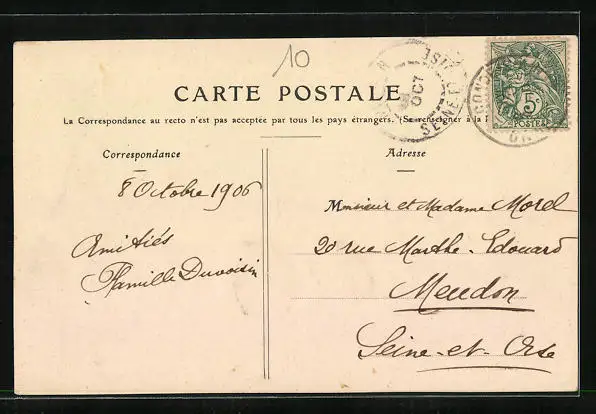 10
CARTE POSTALE
La Correspondance au recto n'est pas acceptée par tous les pays étrangers. (Se renseigner à la
Correspondance
Adresse
8 Octobre 1906
Amitiés
Famille Duvoisin
Monsieur et Madame Morel
20 rue Marthe-Edouard
Meudon
Seine-et-Oise
OCT
SEINE-ET
OISE
GONDE
5c
POSTES